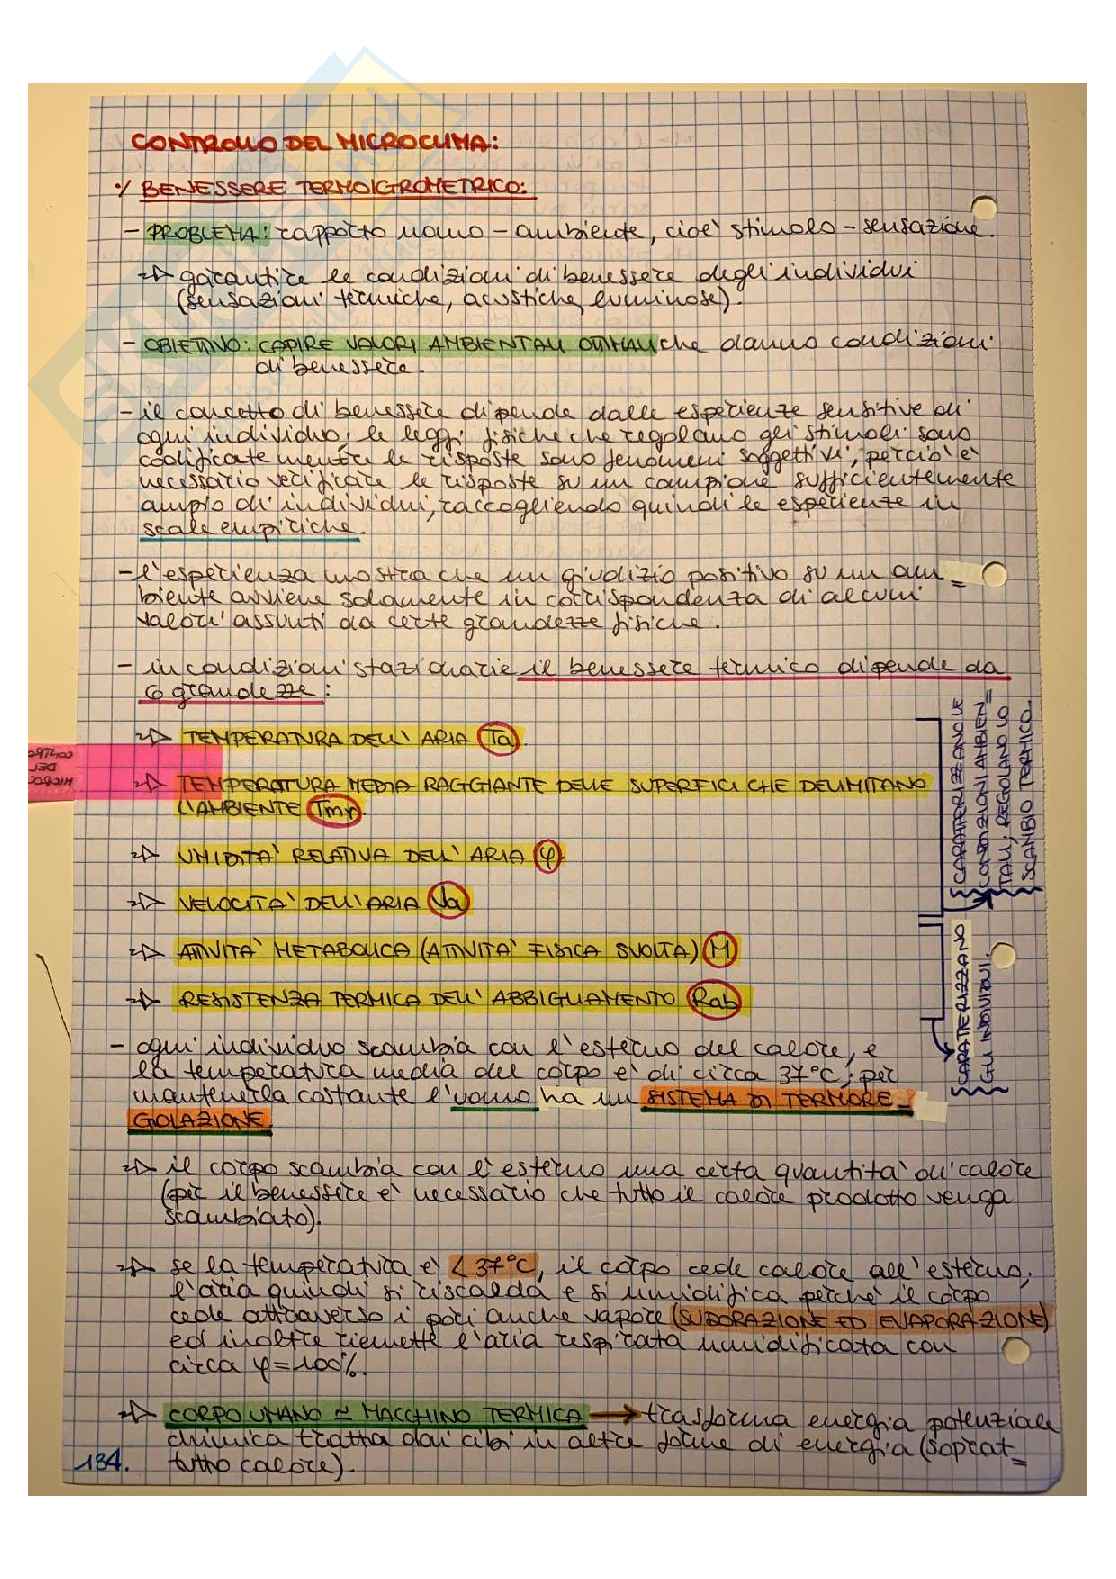 CONTROLLO DEL MICROCLIMA:
•/ BENESSERE TERMOIGROMETRICO:
- PROBLEMA: rapporto uomo - ambiente, cioè stimolo - sensazione.
=> garantire le condizioni di benessere degli individui
(sensazioni termiche, acustiche, luminose).
- OBIETTIVO: CAPIRE VALORI AMBIENTALI OTTIMALI che danno condizioni
di benessere.
- il concetto di benessere dipende dalle esperienze sensitive di
ogni individuo; le leggi fisiche che regolano gli stimoli sono
codificate mentre le risposte sono fenomeni soggettivi, perciò è
necessario verificare le risposte su un campione sufficientemente
ampio di individui, raccogliendo quindi le esperienze in
scale empiriche.
- l'esperienza mostra che un giudizio positivo su un am=
biente avviene solamente in corrispondenza di alcuni
valori assunti da certe grandezze fisiche.
- in condizioni stazionarie il benessere termico dipende da
6 grandezze:
=> TEMPERATURA DELL'ARIA (Ta).
=> TEMPERATURA MEDIA RAGGIANTE DELLE SUPERFICI CHE DELIMITANO
L'AMBIENTE (Tmr).
=> UMIDITA' RELATIVA DELL'ARIA (φ)
=> VELOCITA' DELL'ARIA (Va)
=> ATTIVITA' METABOLICA (ATTIVITA' FISICA SVOLTA) (M)
=> RESISTENZA TERMICA DELL'ABBIGLIAMENTO (Rab)
CARATTERIZZANO LE
CONDIZIONI AMBIEN=
TALI; REGOLANO LO
SCAMBIO TERMICO.
CARATTERIZZANO
GLI INDIVIDUI.
CONTROLLO
DEL
MICROCL
- ogni individuo scambia con l'esterno del calore, e
la temperatura media del corpo è di circa 37°C; per
mantenerla costante l'uomo ha un SISTEMA DI TERMORE-
GOLAZIONE.
=> il corpo scambia con l'esterno una certa quantità di calore
(per il benessere è necessario che tutto il calore prodotto venga
scambiato).
=> se la temperatura è < 37°C, il corpo cede calore all'esterno,
l'aria quindi si riscalda e si umidifica perché il corpo
cede attraverso i pori anche vapore (SUDORAZIONE ED EVAPORAZIONE)
ed inoltre riemette l'aria respirata umidificata con
circa φ=100%.
=> CORPO UMANO ≈ MACCHINA TERMICA → trasforma energia potenziale
chimica tratta dai cibi in altre forme di energia (soprat=
tutto calore).
134.